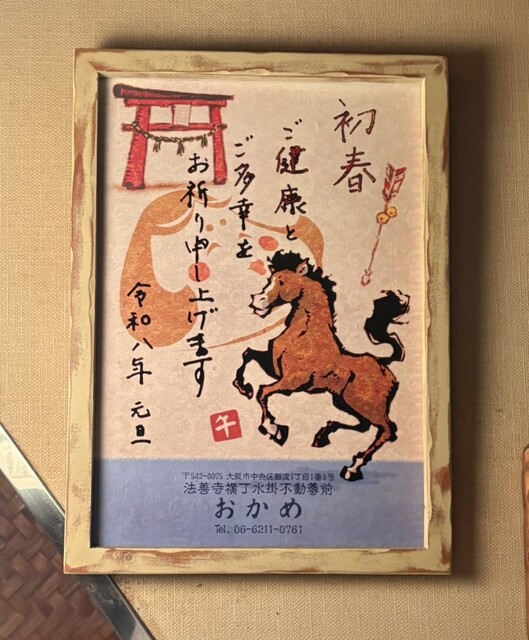 初春
ご健康と
ご多幸を
お祈り申し上げます
令和八年 元旦
午
〒542-0075 大阪市中央区難波1丁目1番8号
法善寺横丁水掛不動尊前
おかめ
Tel. 06-6211-0761